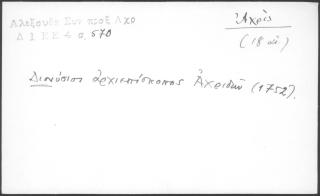 Αλεξούδη Συν πρoξ Αχο
Δ Ι Ε Ε 4 σ. 570
Ἀχρίς
(18 αἰ.)
Διονύσιος ἀρχιεπίσκοπος Ἀχριδῶν (1752).